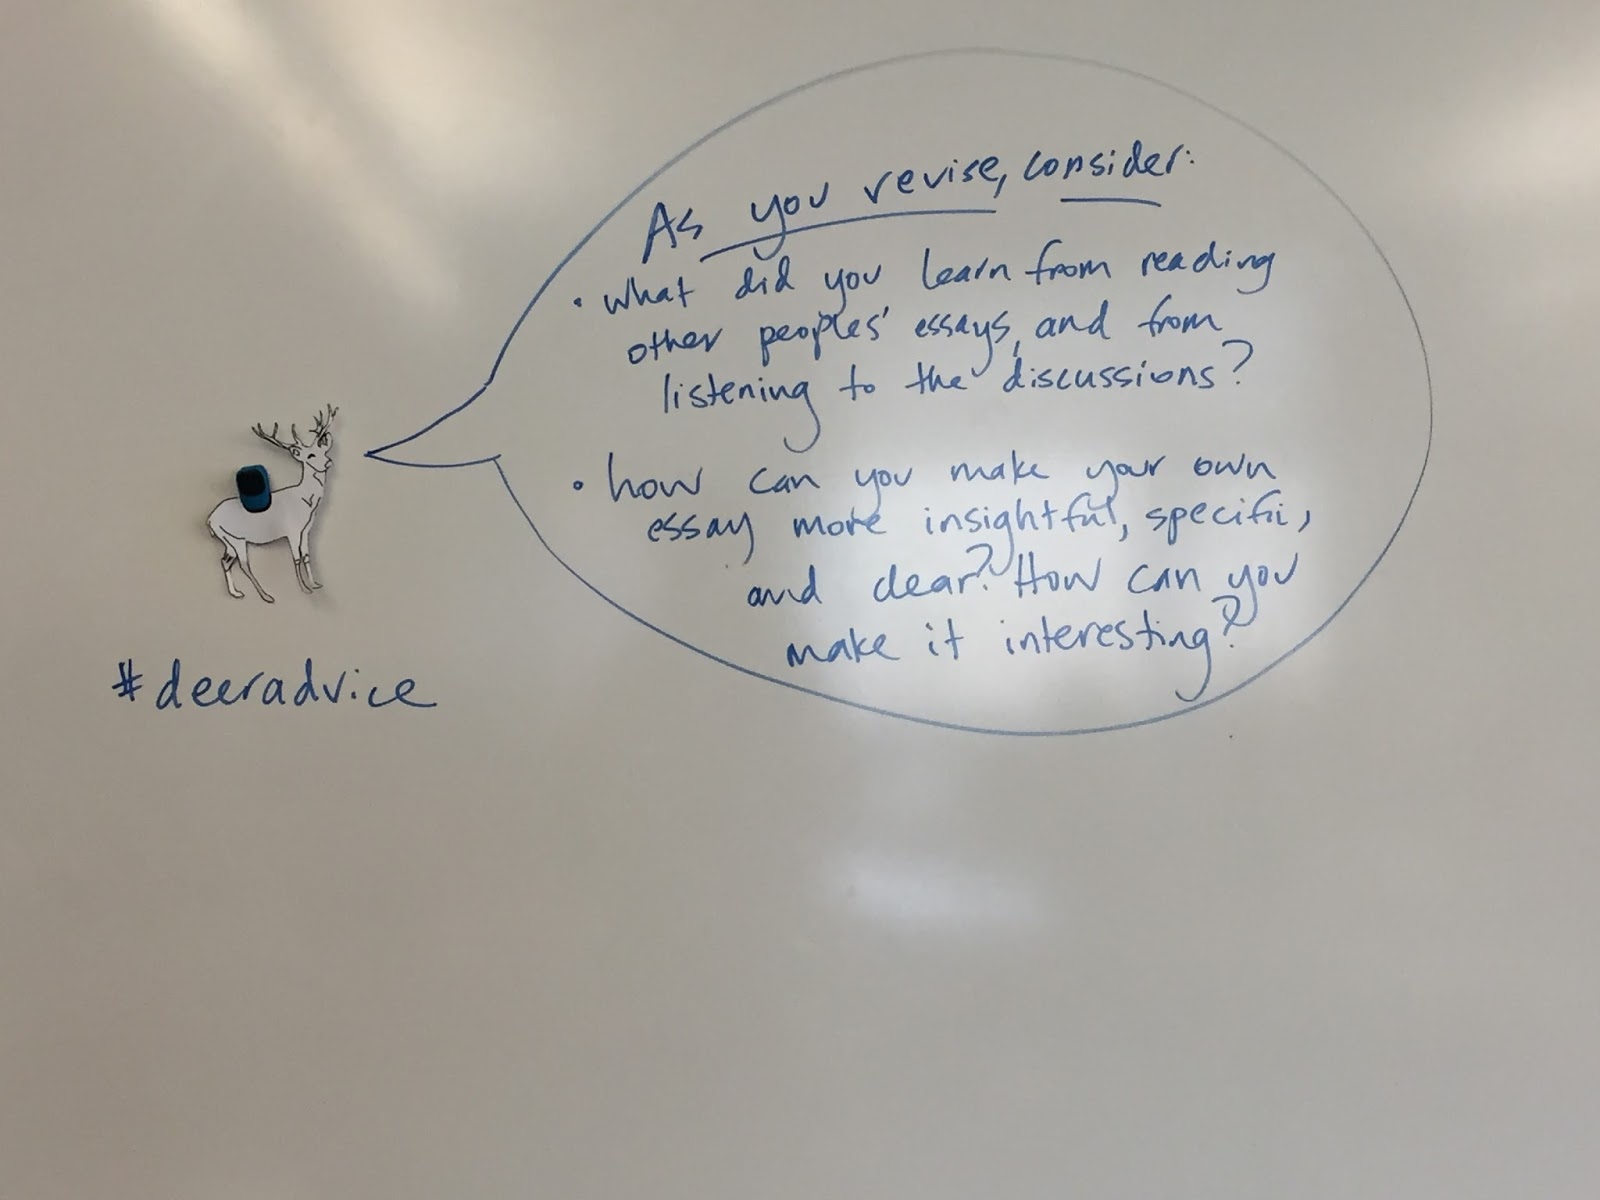 As you revise, consider:
• what did you learn from reading
other peoples' essays, and from
listening to the discussions?
• how can you make your own
essay more insightful, specific,
and clear? How can you
make it interesting?
#deeradvice